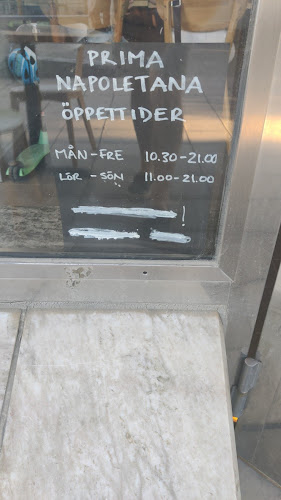 PRIMA
NAPOLETANA
ÖPPETTIDER
MÅN-FRE 10.30-21.00
LÖR - SÖN 11.00-21.00
!